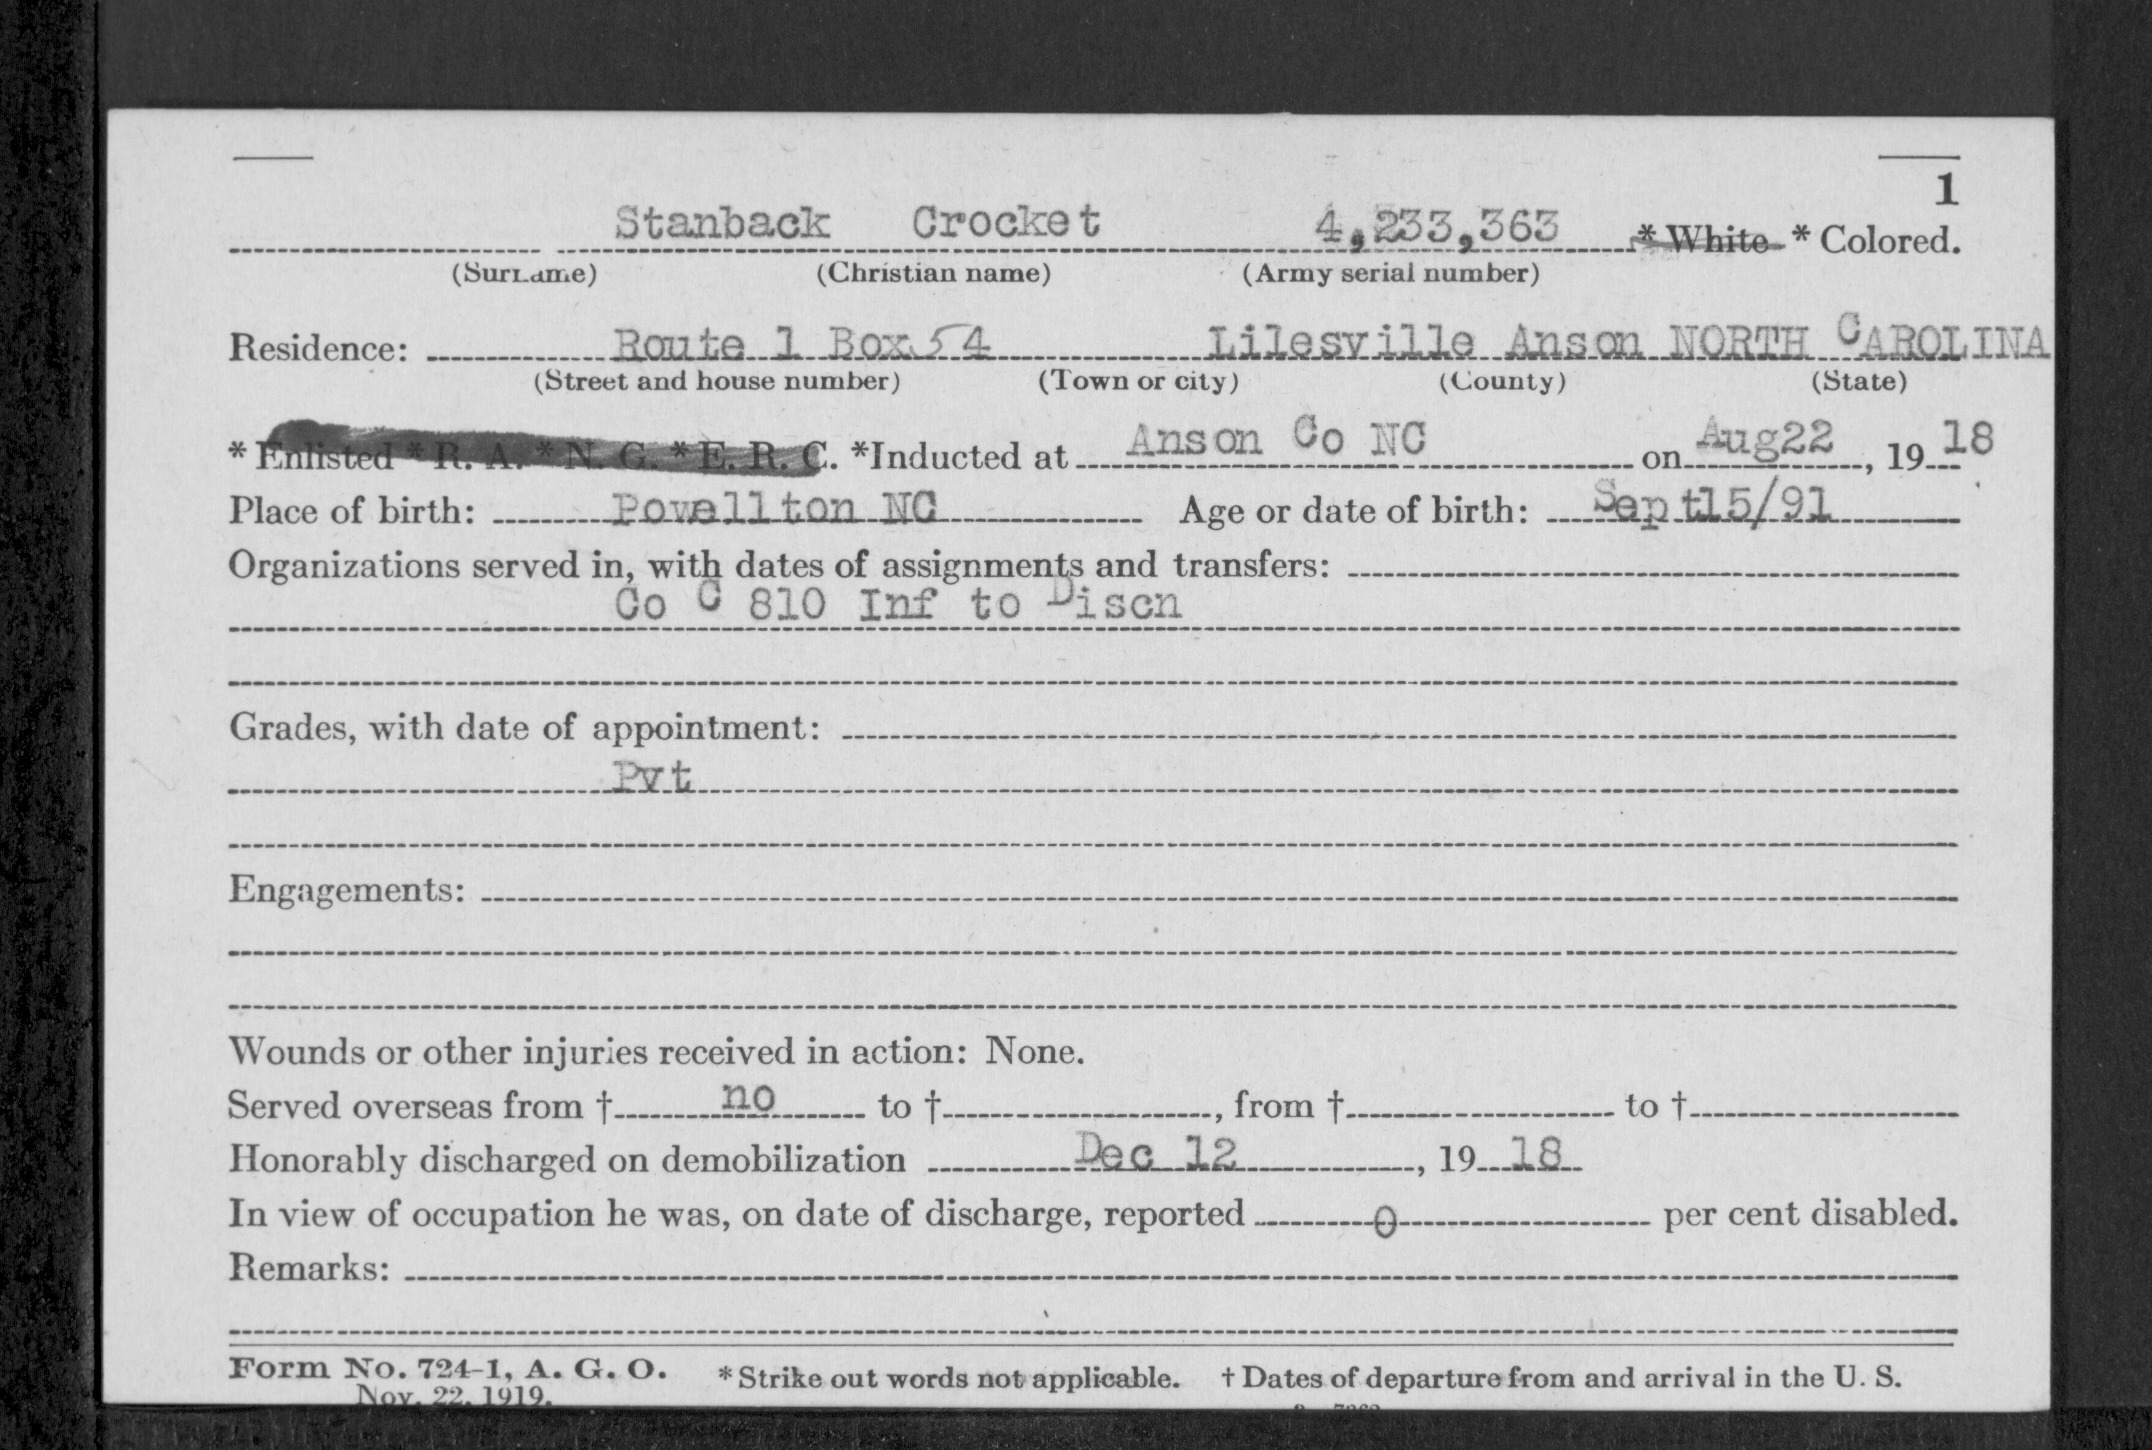 1
Stanback Crocket 4,233,363 * White * Colored.
(Surname) (Christian name) (Army serial number)
Residence: Route 1 Box 54 Lilesville Anson NORTH CAROLINA
(Street and house number) (Town or city) (County) (State)
* Enlisted * R. A. * N. G. * E. R. C. *Inducted at Anson Co NC on Aug22, 19 18
Place of birth: Powellton NC Age or date of birth: Sept15/91
Organizations served in, with dates of assignments and transfers:
Co C 810 Inf to Discn
Grades, with date of appointment:
Pvt
Engagements:
Wounds or other injuries received in action: None.
Served overseas from † no to †, from † to †
Honorably discharged on demobilization Dec 12, 19 18
In view of occupation he was, on date of discharge, reported 0 per cent disabled.
Remarks:
Form No. 724-1, A. G. O. * Strike out words not applicable. † Dates of departure from and arrival in the U. S.
Nov. 22, 1919.